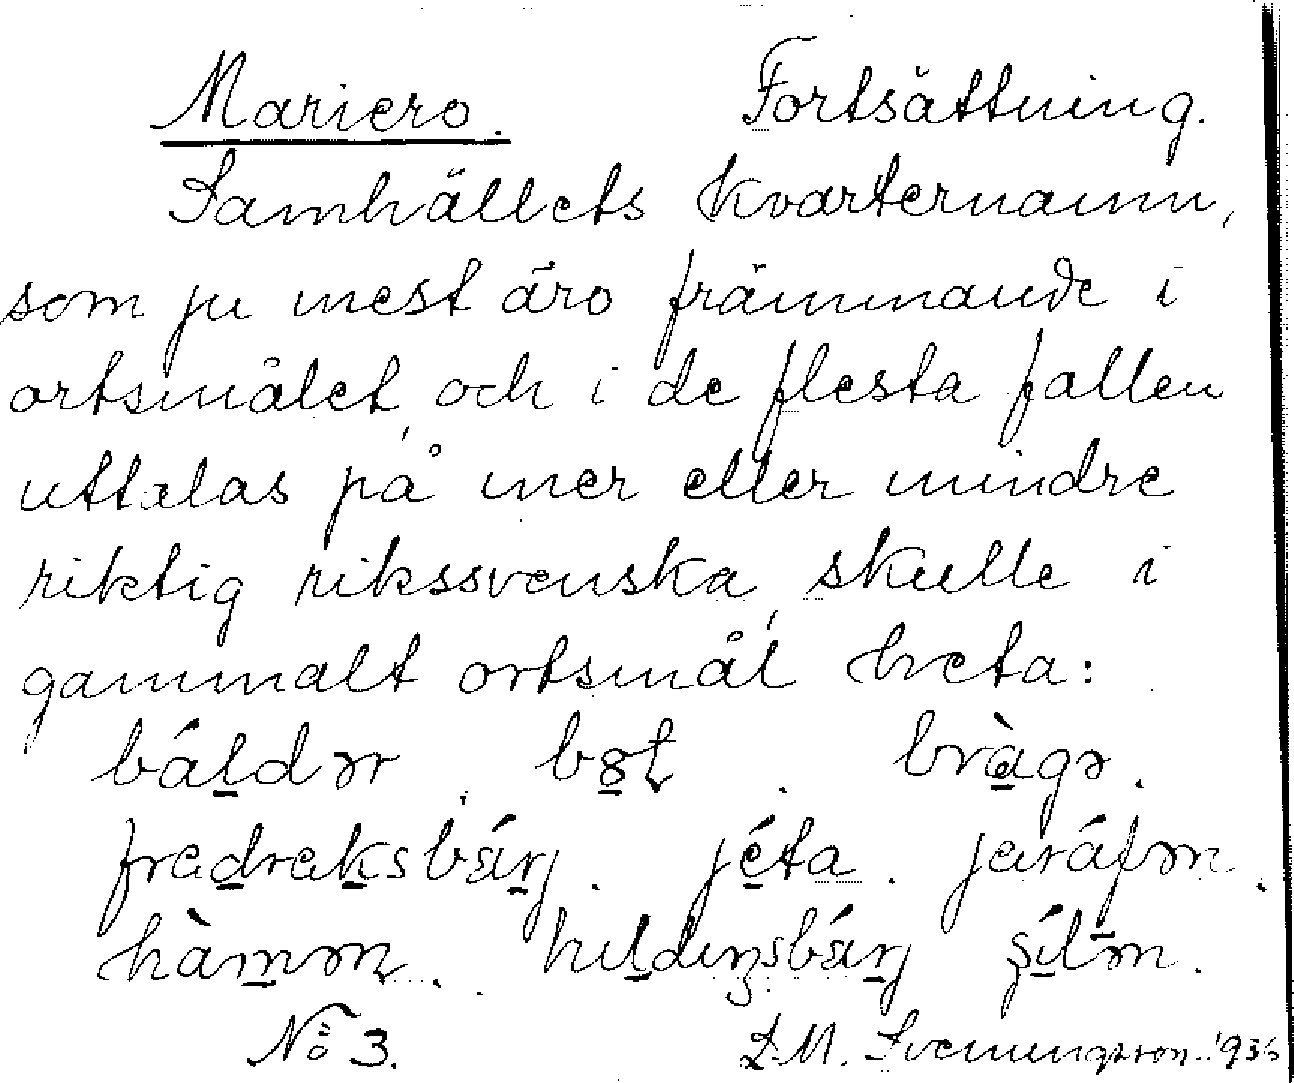 Mariero. Fortsättning.
Samhällets kvarternamn,
som ju mest äro främmande i
ortsmålet, och i de flesta fallen
uttalas på mer eller mindre
riktig rikssvenska, skulle i
gammalt ortsmål heta:
báldər. bràgə.
fredreksbärj. jéta. jeráfən.
hàmən. hildiŋsbärj
No 3. S. M. Svenungsson.